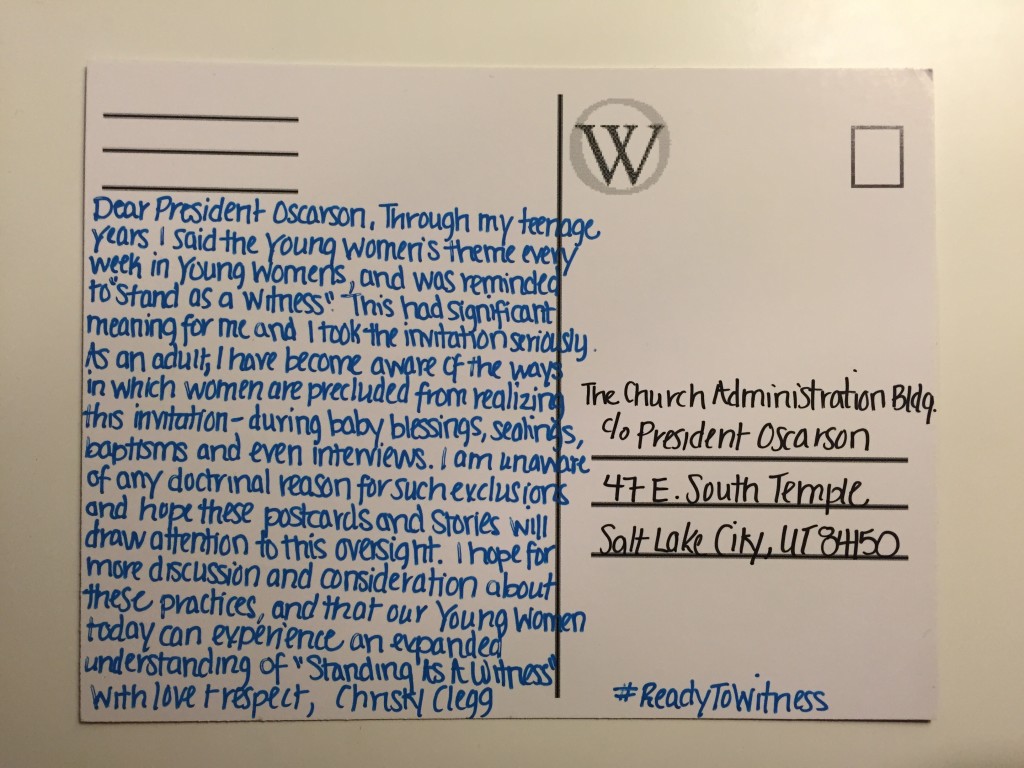 Dear President Oscarson, Through my teenage
years I said the Young Women's theme every
week in Young Women's, and was reminded
to "Stand as a Witness". This had significant
meaning for me and I took the invitation seriously.
As an adult, I have become aware of the ways
in which women are precluded from realizing
this invitation - during baby blessings, sealings,
baptisms and even interviews. I am unaware
of any doctrinal reason for such exclusions
and hope these postcards and stories will
draw attention to this oversight. I hope for
more discussion and consideration about
these practices, and that our Young Women
today can experience an expanded
understanding of "Standing As A Witness"
With love + respect, Christy Clegg
W
The Church Administration Bldg.
c/o President Oscarson
47 E. South Temple
Salt Lake City, UT 84150
#ReadyToWitness